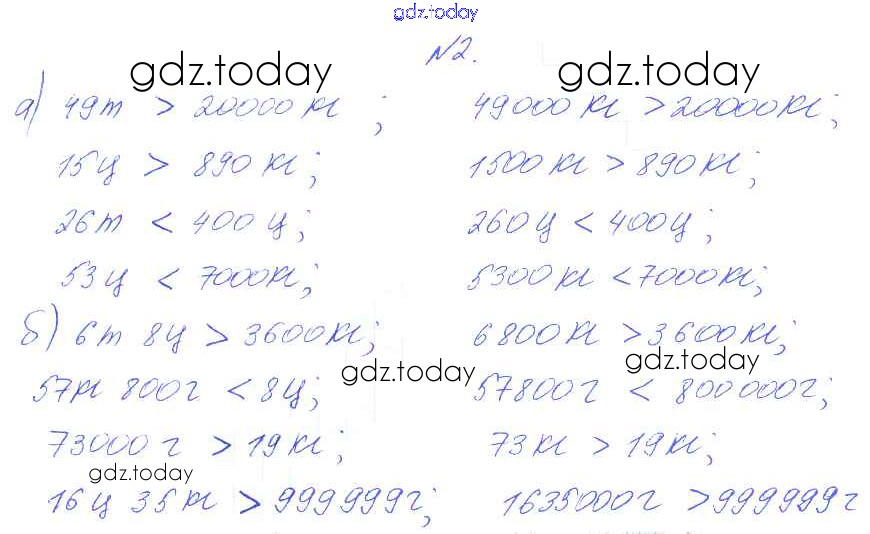 gdz.today
N2.
gdz.today gdz.today
а) 49т > 20000кг ; 49000кг > 20000кг;
15ц > 890кг; 1500кг > 890кг;
26т < 400ц; 260ц < 400ц;
53ц < 7000кг; 5300кг < 7000кг;
б) 6т 8ц > 3600кг; 6800кг > 3600кг;
gdz.today gdz.today
57кг 800г < 8ц; 57800г < 800000г;
73000г > 19кг; 73кг > 19кг;
gdz.today
16ц 35кг > 999999г; 1635000г > 999999г